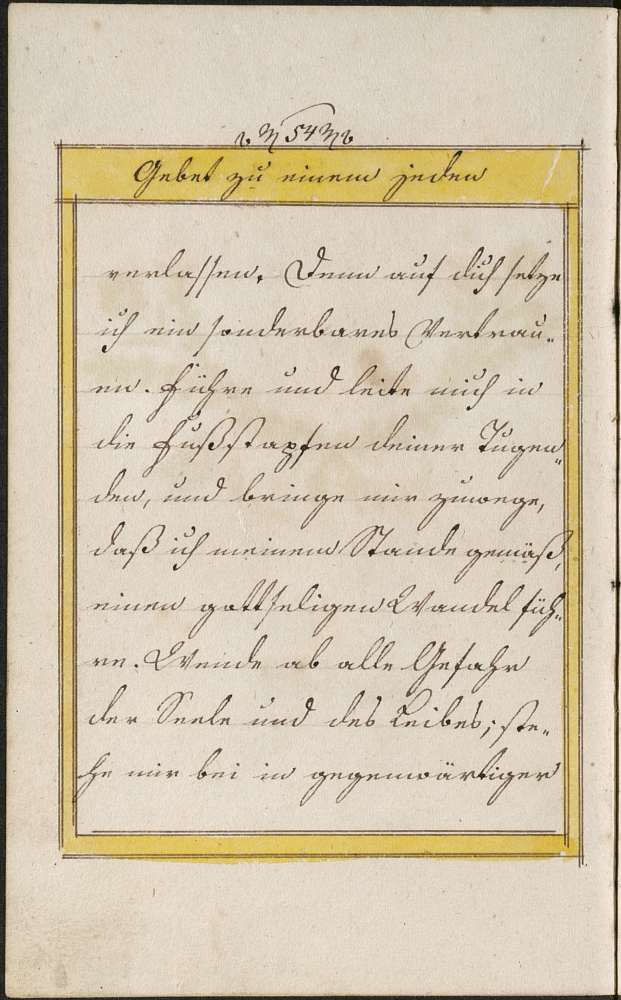 54
Gebet zu einem jeden
verlassen. Denn auf dich setze
ich ein sonderbares Vertrau„
en. Führe und leite mich in
die Fußstapfen deiner Tugen„
den, und bringe mir zuwege,
daß ich meinem Stande gemäß,
einen gottseligen Wandel füh„
re. Wende ab alle Gefahr
der Seele und des Leibes; ste„
he mir bei in gegenwärtiger